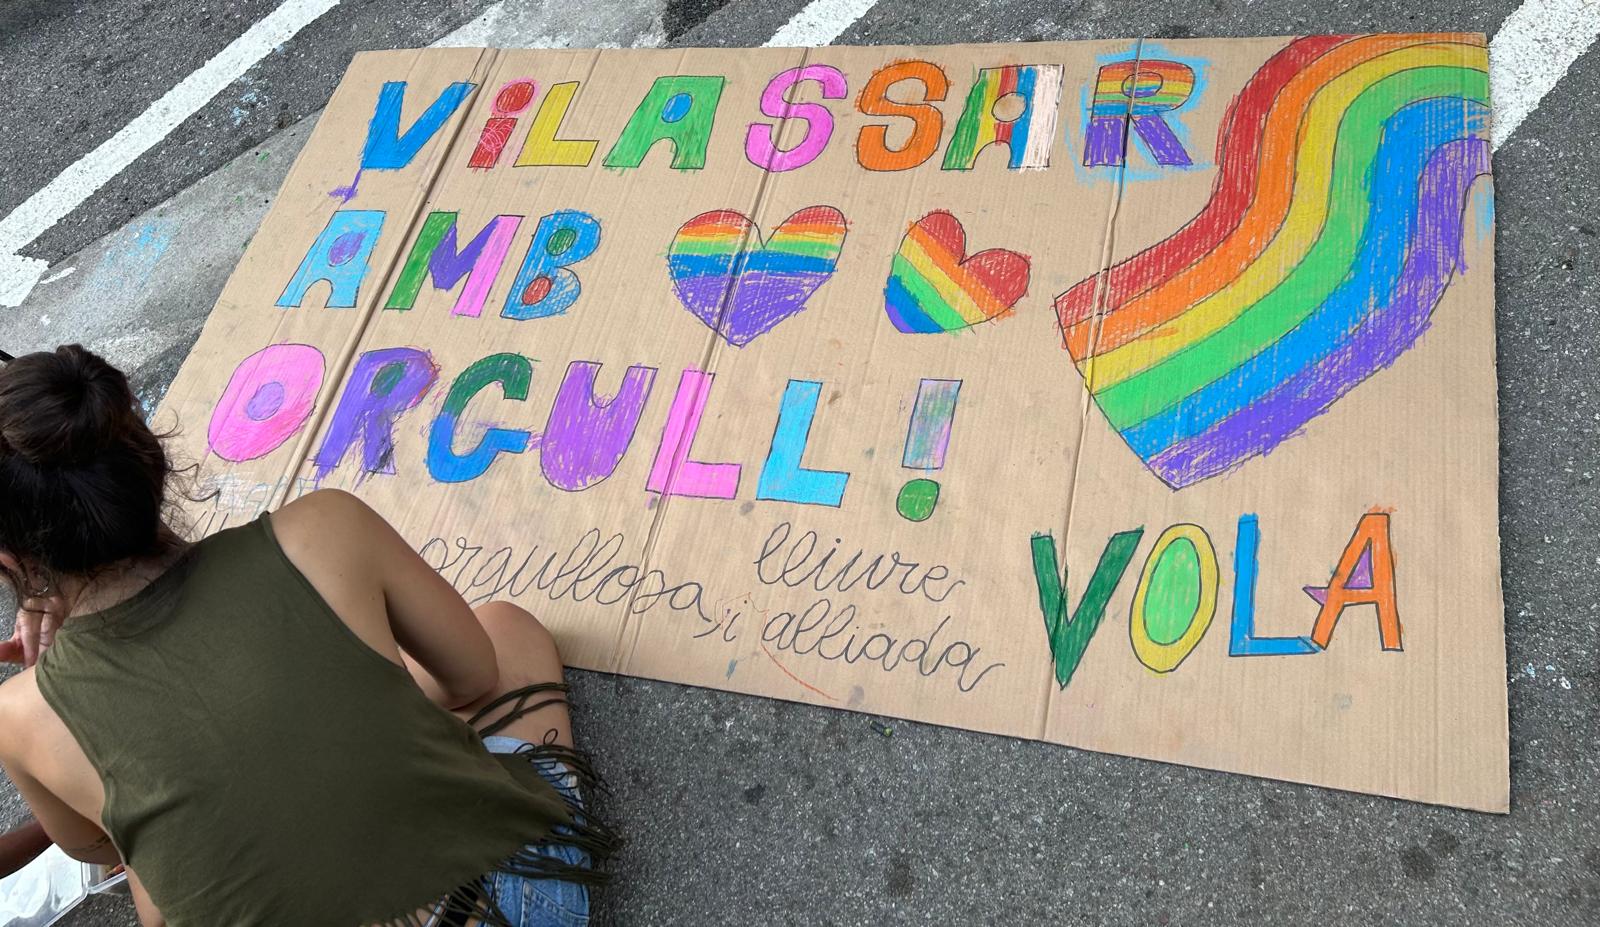 ViLASSAR
AMB
ORGULL!
orgullosa, lliure
i alliada
VOLA